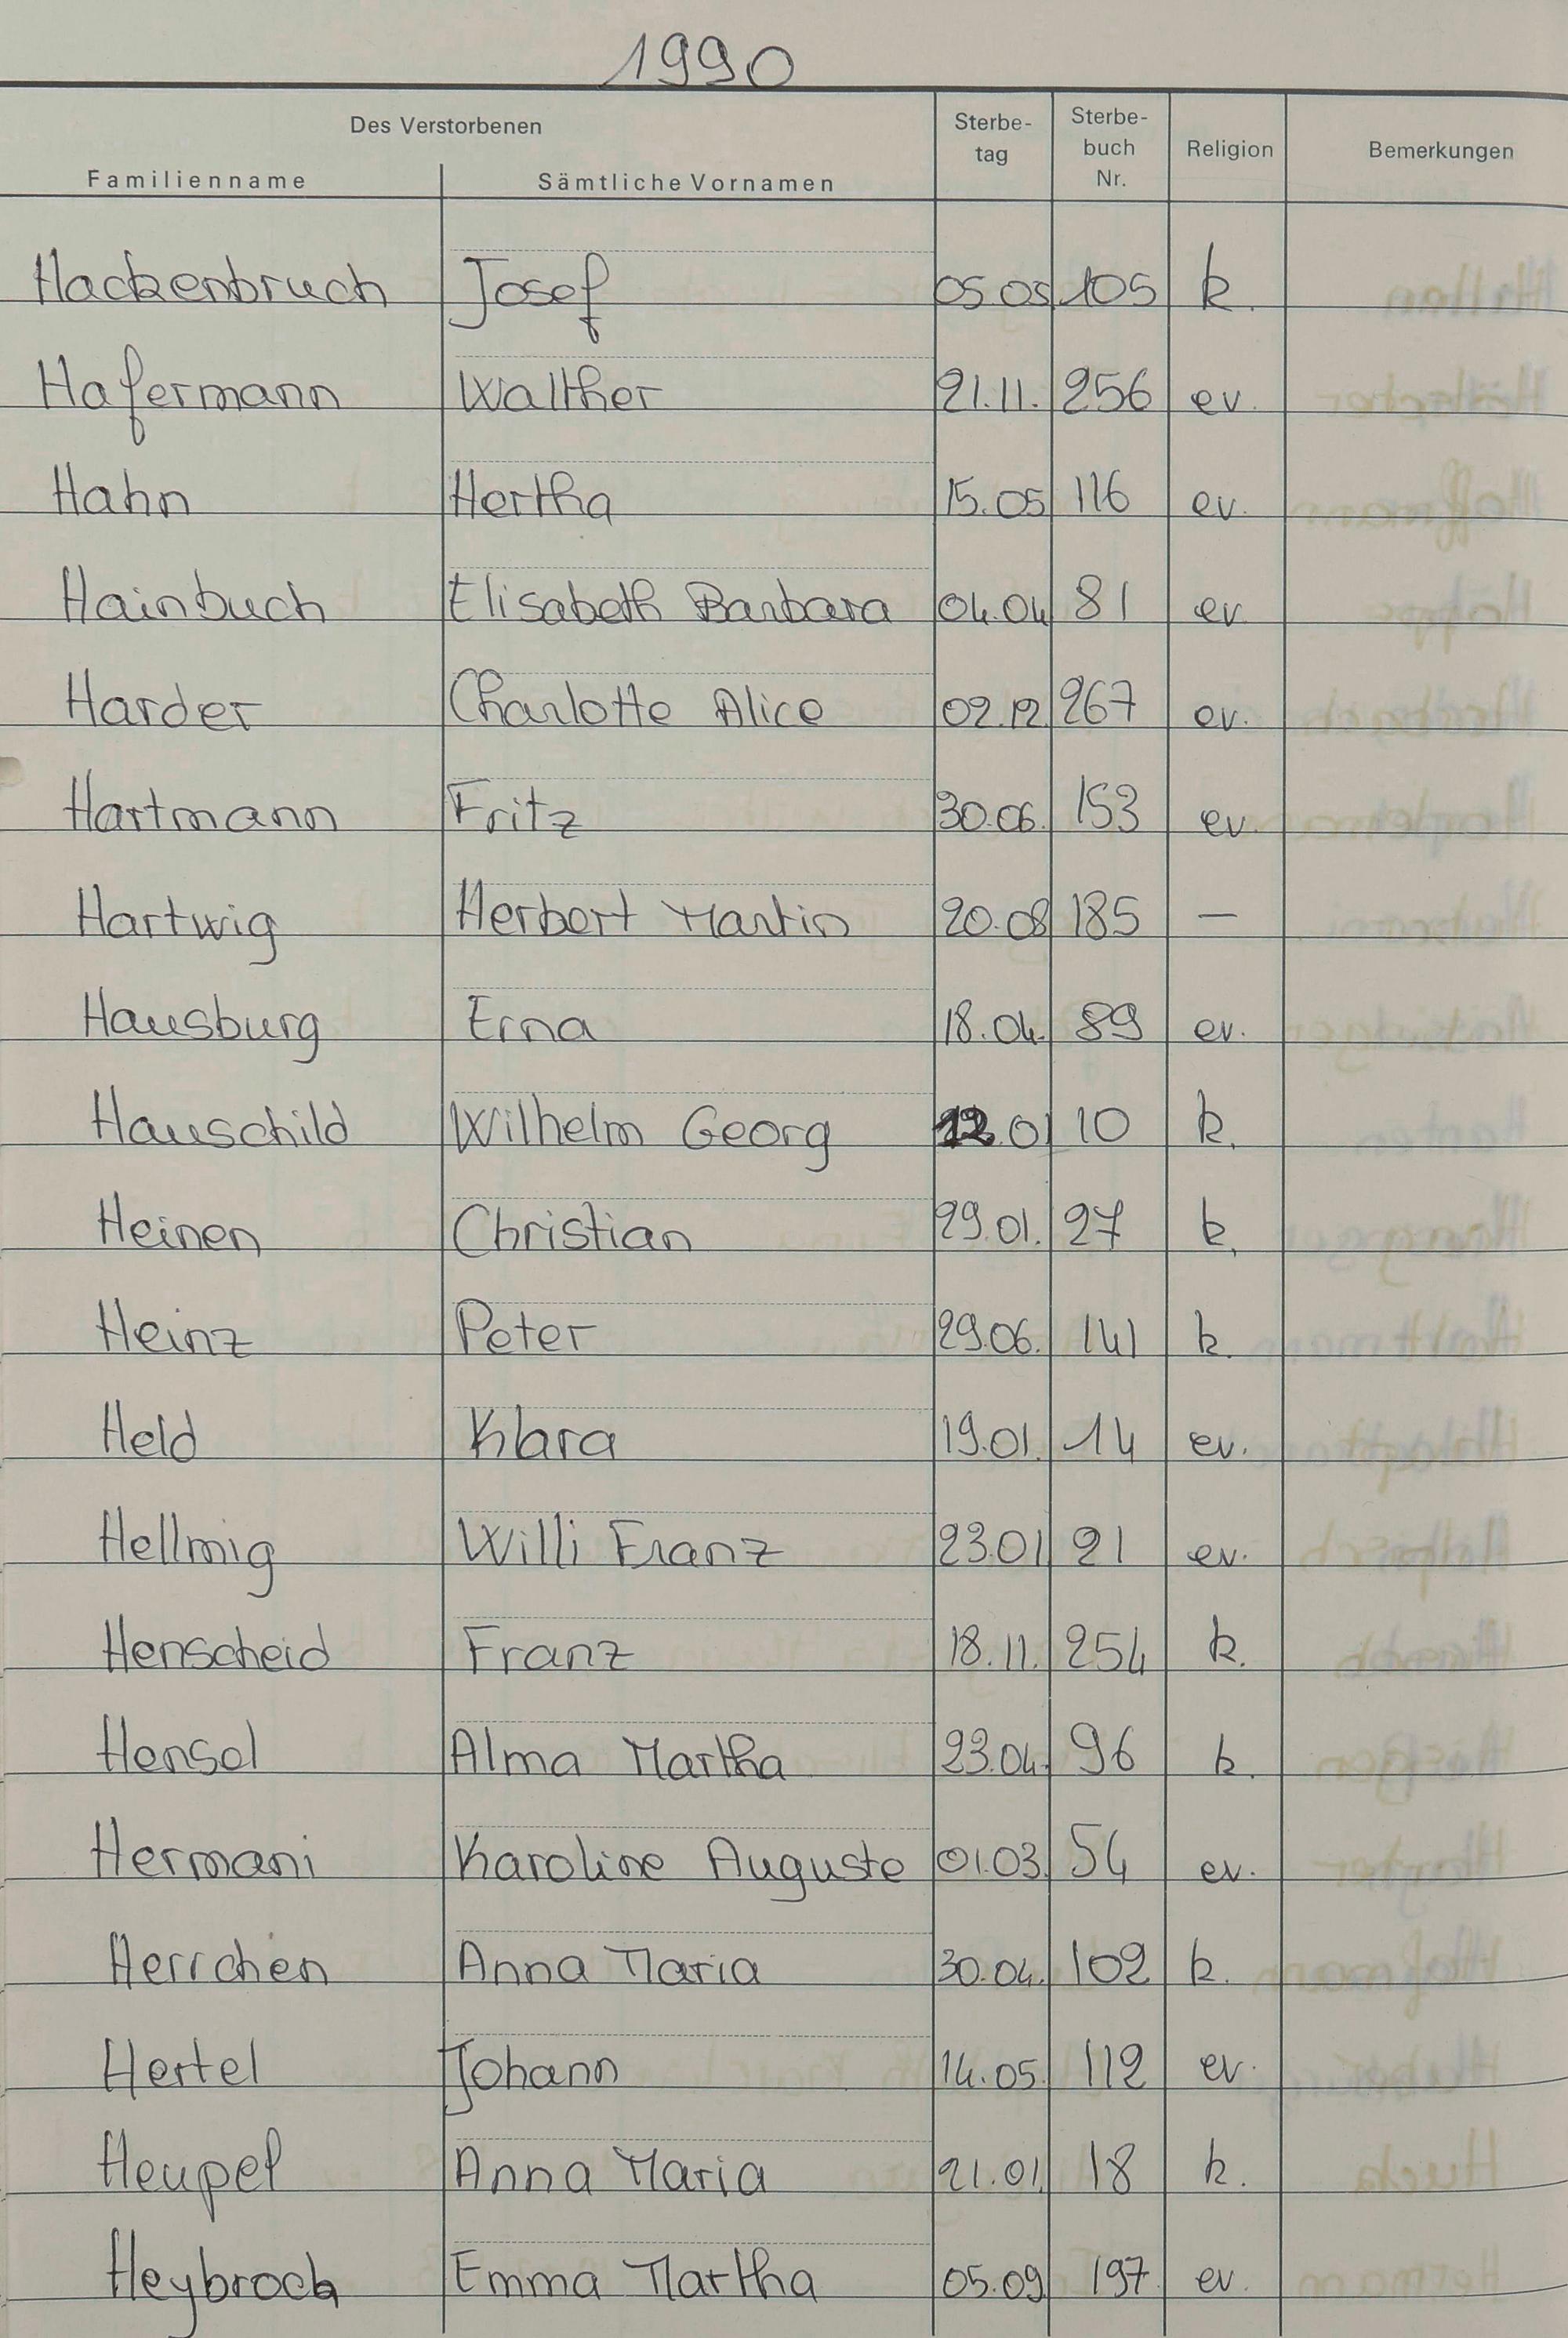 1990
Des Verstorbenen
Familienname Sämtliche Vornamen Sterbe-tag Sterbe-buch Nr. Religion Bemerkungen
Hackenbruch Josef 05.05. 105 k.
Hafermann Walther 21.11. 256 ev.
Hahn Hertha 15.05 116 ev.
Hainbuch Elisabeth Barbara 04.04 81 ev.
Harder Charlotte Alice 02.12. 267 ev.
Hartmann Fritz 30.06. 153 ev.
Hartwig Herbert Martin 20.08 185 —
Hausburg Erna 18.04. 89 ev.
Hauschild Wilhelm Georg 12.01 10 k.
Heinen Christian 29.01. 27 k.
Heinz Peter 29.06. 141 k.
Held Klara 19.01. 14 ev.
Hellmig Willi Franz 23.01 21 ev.
Henscheid Franz 18.11. 254 k.
Hensel Alma Martha 23.04. 96 k.
Hermani Karoline Auguste 01.03. 54 ev.
Herrchen Anna Maria 30.04. 102 k.
Hertel Johann 14.05. 112 ev.
Heupel Anna Maria 21.01. 18 k.
Heybrock Emma Martha 05.09. 197 ev.